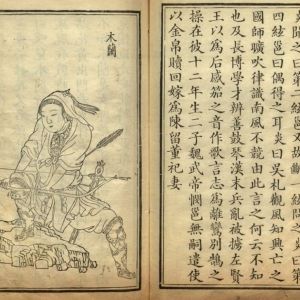 絃問之曰第
四絃邕曰偶得之耳炎曰吳札觀風知興亡之
國師曠吹律識南風不競由此言之何云不知
也及長博學才辨善鼓琴漢末兵亂被擄左賢
王以爲后感笳之音作歌言志爲離鸞別鵠之
操在彼十二年生二子魏武帝憫邕無嗣遣使
以金帛贖回嫁爲陳留董祀妻
木蘭